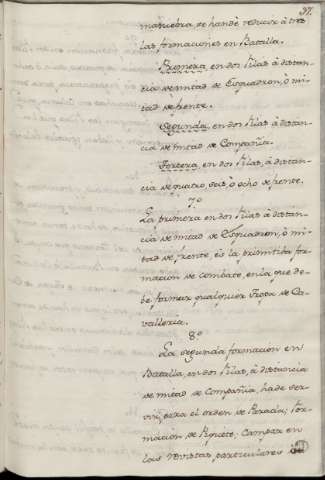 97.
maniobra se han de reducir à tres
las formaciones en Batalla.
Primera, en dos filas à distan-
cia de mitad de Esquadron, ò mi-
tad de frente.
Segunda, en dos filas à distan-
cia de mitad de Compañia.
Tercera, en dos filas, à distan-
cia de quatro, seis, ò ocho de frente.
7º
La primera en dos filas à distan-
cia de mitad de Esquadron, ò mi-
tad de frente, es la primitiba for-
macion de combate, en la que de-
be formar qualquier Tropa de Ca-
valleria.
8º
La segunda formacion en
Batalla, en dos filas, à distancia
de mitad de Compañia, ha de ser-
vir, para el orden de Parada, for-
macion de Piquete, Campar en
las Revistas, particulares